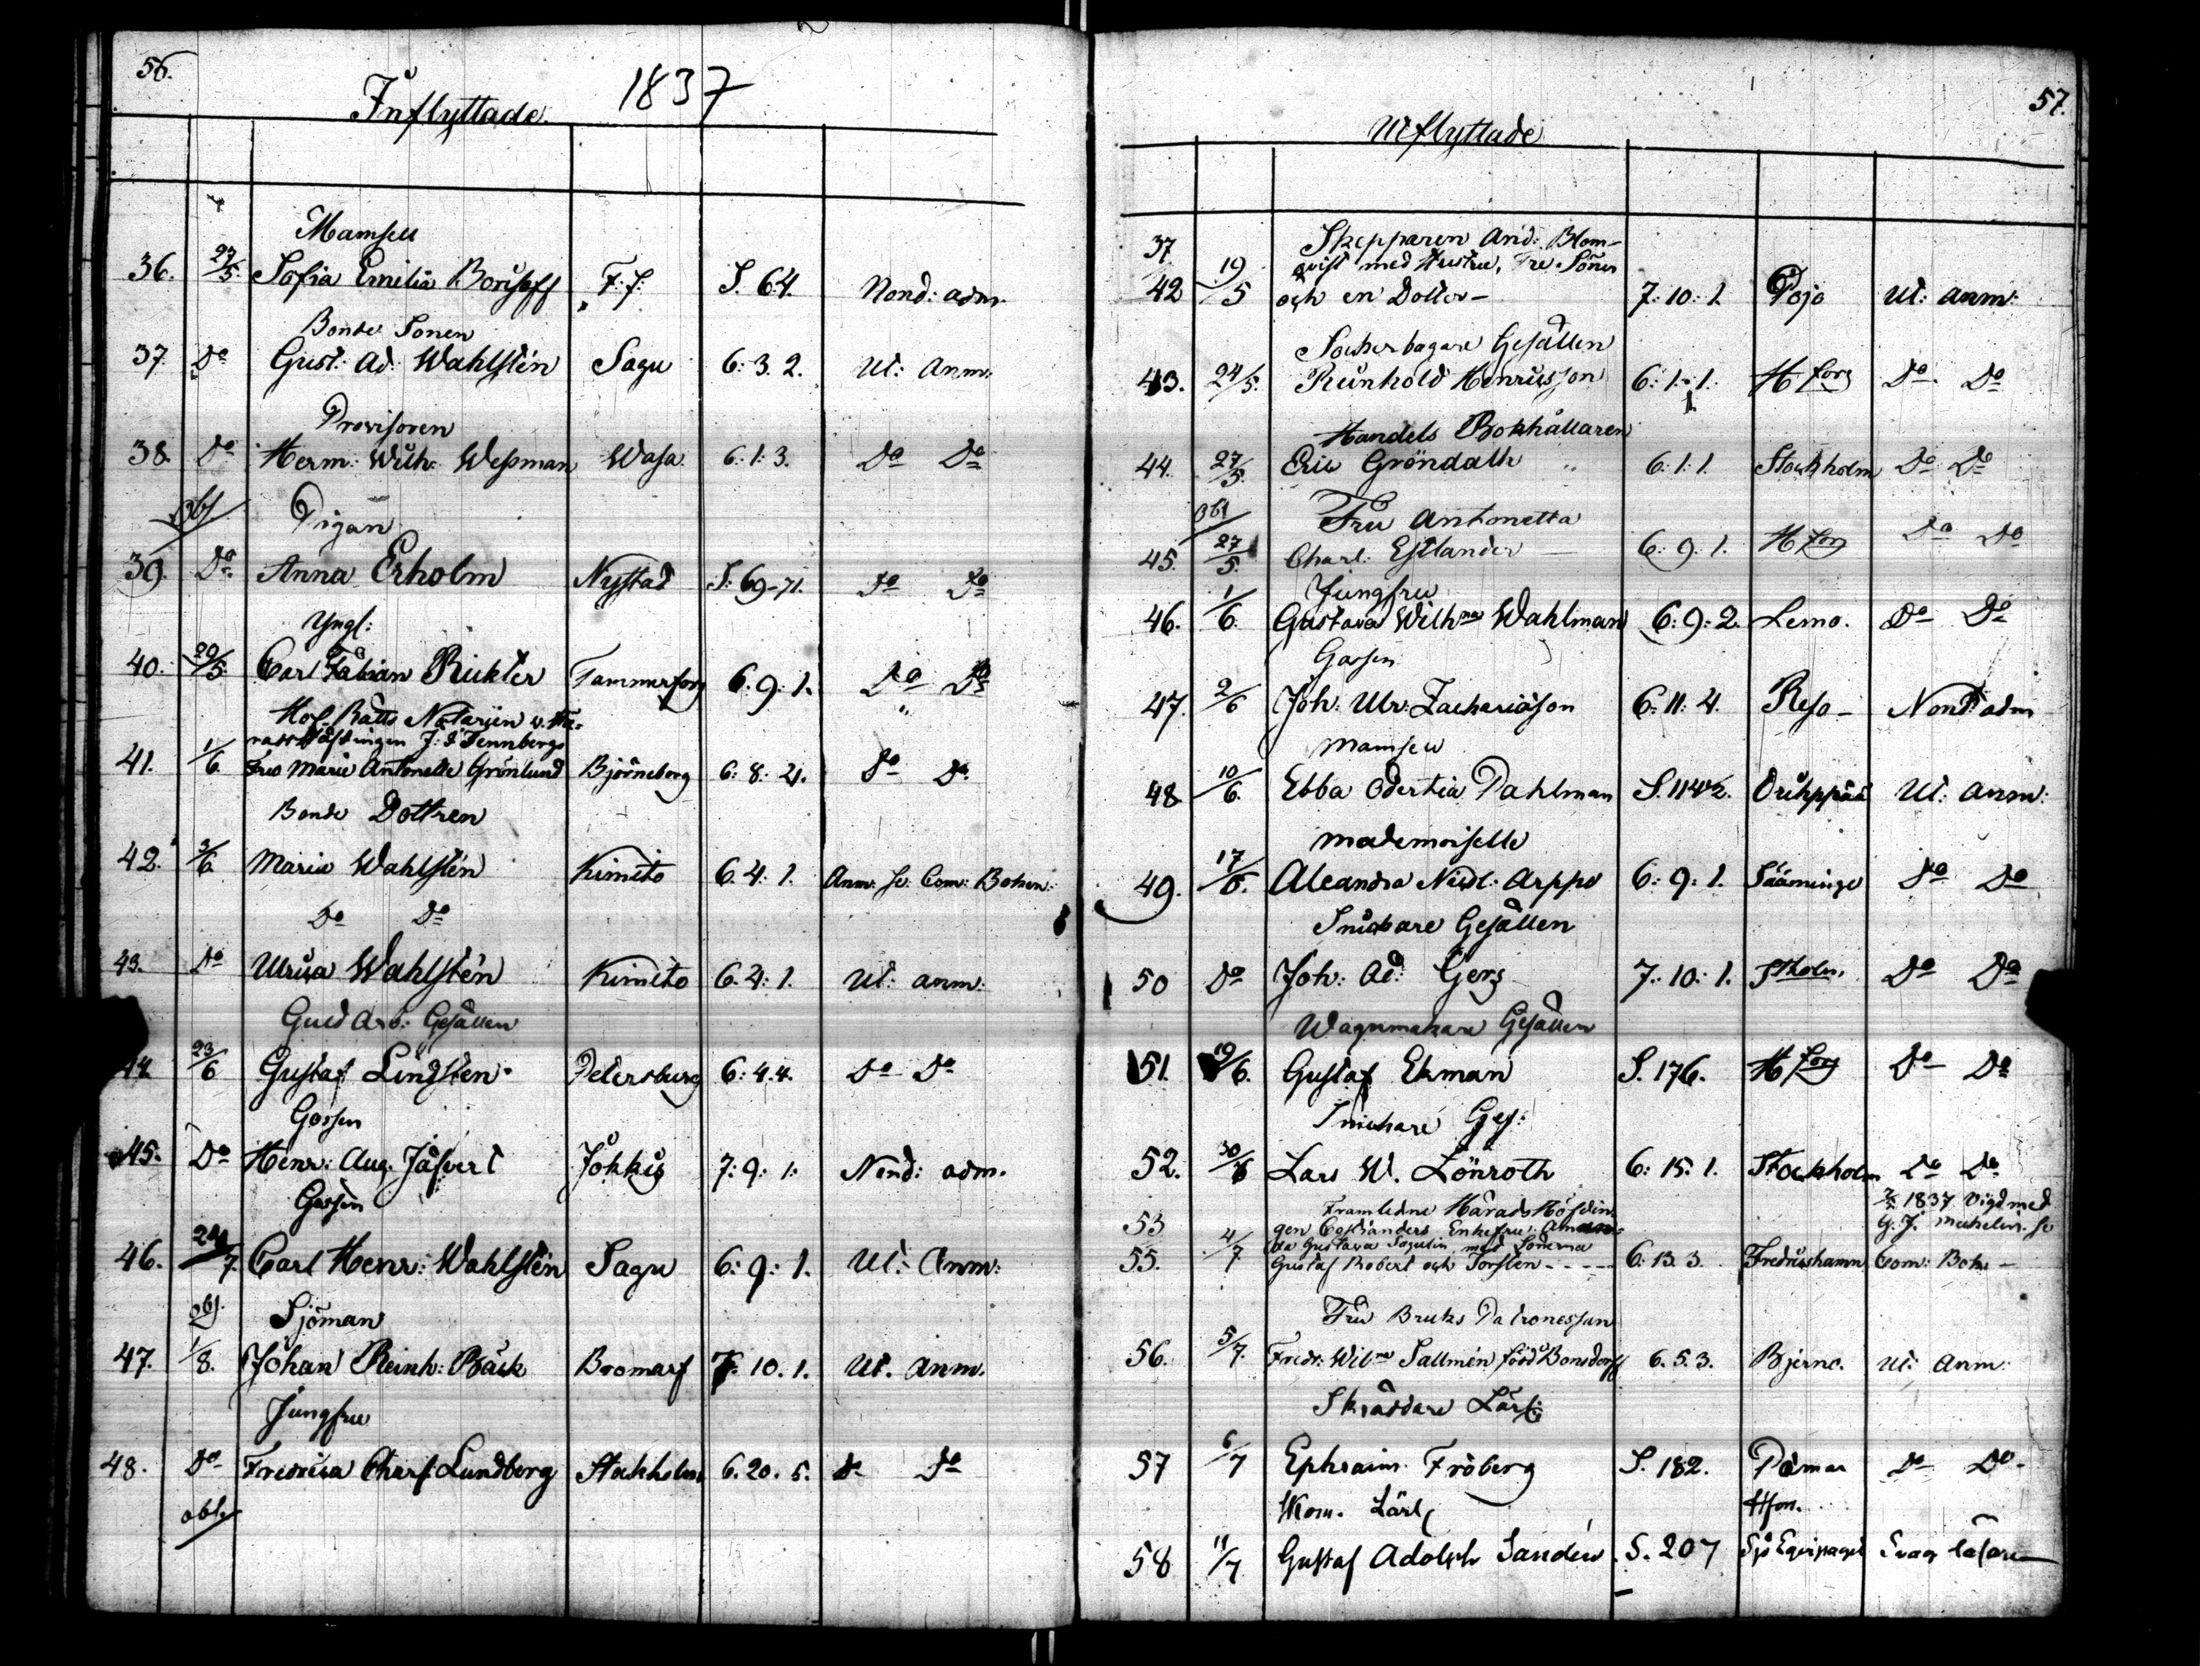 56.
Inflyttade 1837
Mamsell
36. 27/5. Sofia Emilia Borisoff F:f: S. 64. Nond: adm.
Bonde Sonen
37. Do Gust: Ad: Wahlstén Sagu 6: 3. 2. Ut: Anm:
Provisoren
38. Do Herm: Wilh: Wessman Wasa 6: 1: 3. Do Do
obs.
Pigan
39. Do Anna Erholm Nystad S: 69-71. Do Do
Yngl:
40. 29/5 Carl Fabian Richter Tammerfors 6: 9: 1. Do Do
Hof-Rätts Notarien v. Hä-
radshöfdingen J: Tennbergs
41. 1/6. Fru Marie Antonette Grönlund Björneborg 6: 8: 4. Do Do
Bonde Dottren
42. 3/6. Maria Wahlstén Kimito 6. 4: 1. Anm: se Com: Boken:
Do Do
43. Do Ulrica Wahlstén Kimito 6. 4: 1. Ut: anm:
Guld Arb: Gesällen
44. 23/6 Gustaf Lindsten Petersburg 6: 4. 4. Do Do
Gossen
45. Do Henr: Aug. Jäfvert Jokkis 7: 9: 1: Nond: adm.
Gossen
46. 24/7. Carl Henr: Wahlstén Sagu 6: 9: 1. Ut: Anm:
obs.
Sjöman
47. 1/8. Johan Reinh: Bäck Bromarf 7. 10. 1. Ut. Anm.
Jungfru
48. Do Fredrica Charl: Lundberg Stockholm 6. 20. 5. Do Do
obs.
57.
Utflyttade
37 Skepparen And: Blom-
19 qvist med Hustru, Tre Söner
42 /5 och en Dotter - 7: 10: 1. Pojo Ut: anm:
Sockerbagare Gesällen
43. 24/5. Reinhold Henricsson 6: 1: 1. H fors Do Do
Handels Bokhållaren
44. 27/5. Eric Gröndahl 6: 1: 1. Stockholm Do Do
obs
Fru Antonetta
45. 27/5. Charl: Estlander 6: 9: 1. H fors Do Do
Jungfru
46. 1/6. Gustava Wilhna Wahlman 6: 9: 2. Lemo. Do Do
Gossen
47. 2/6 Joh: Ulr: Zachariasson 6: 11: 4. Reso - Nond: adm
Mamsell
48 10/6. Ebba Dahlman S. 114½. Oripää Ut: Anm:
Mademoiselle
49. 17/6. Aleandra Arppe 6: 9: 1. Sääminge Do Do
Snickare Gesällen
50 Do Joh: Ad: Gers 7: 10: 1. Stholm. Do Do
Wagnmakare Gesällen
51. 19/6. Gustaf Ekman S. 176. H fors Do Do
Snickare Ges:
52. 30/6 Lars W. Lönroth 6: 15: 1. Stockholm Do Do
53 Framledne Härads Höfdin-
1837 Vigd med
gen Enkefru Aman-
G. J. Mechelin. se
4/7 da Gustava med Sönerna
55. Gustaf Robert och Torsten - - - - 6: 13. 3. Fredrikshamn Com: Bok -
Fru Bruks Patronessan
56. 5/7. Fredr: Wilna Sallmén född Bonsdorff 6. 5. 3. Bjerno. Ut: Anm:
Skräddare Lärl:
57 6/7 Ephraim Fröberg S. 182. Pämar Do Do
Kom. Lärl Hfors.
58 11/7 Gustaf Adolph Sandén S. 207 Sjö Equipaget Svag läsare